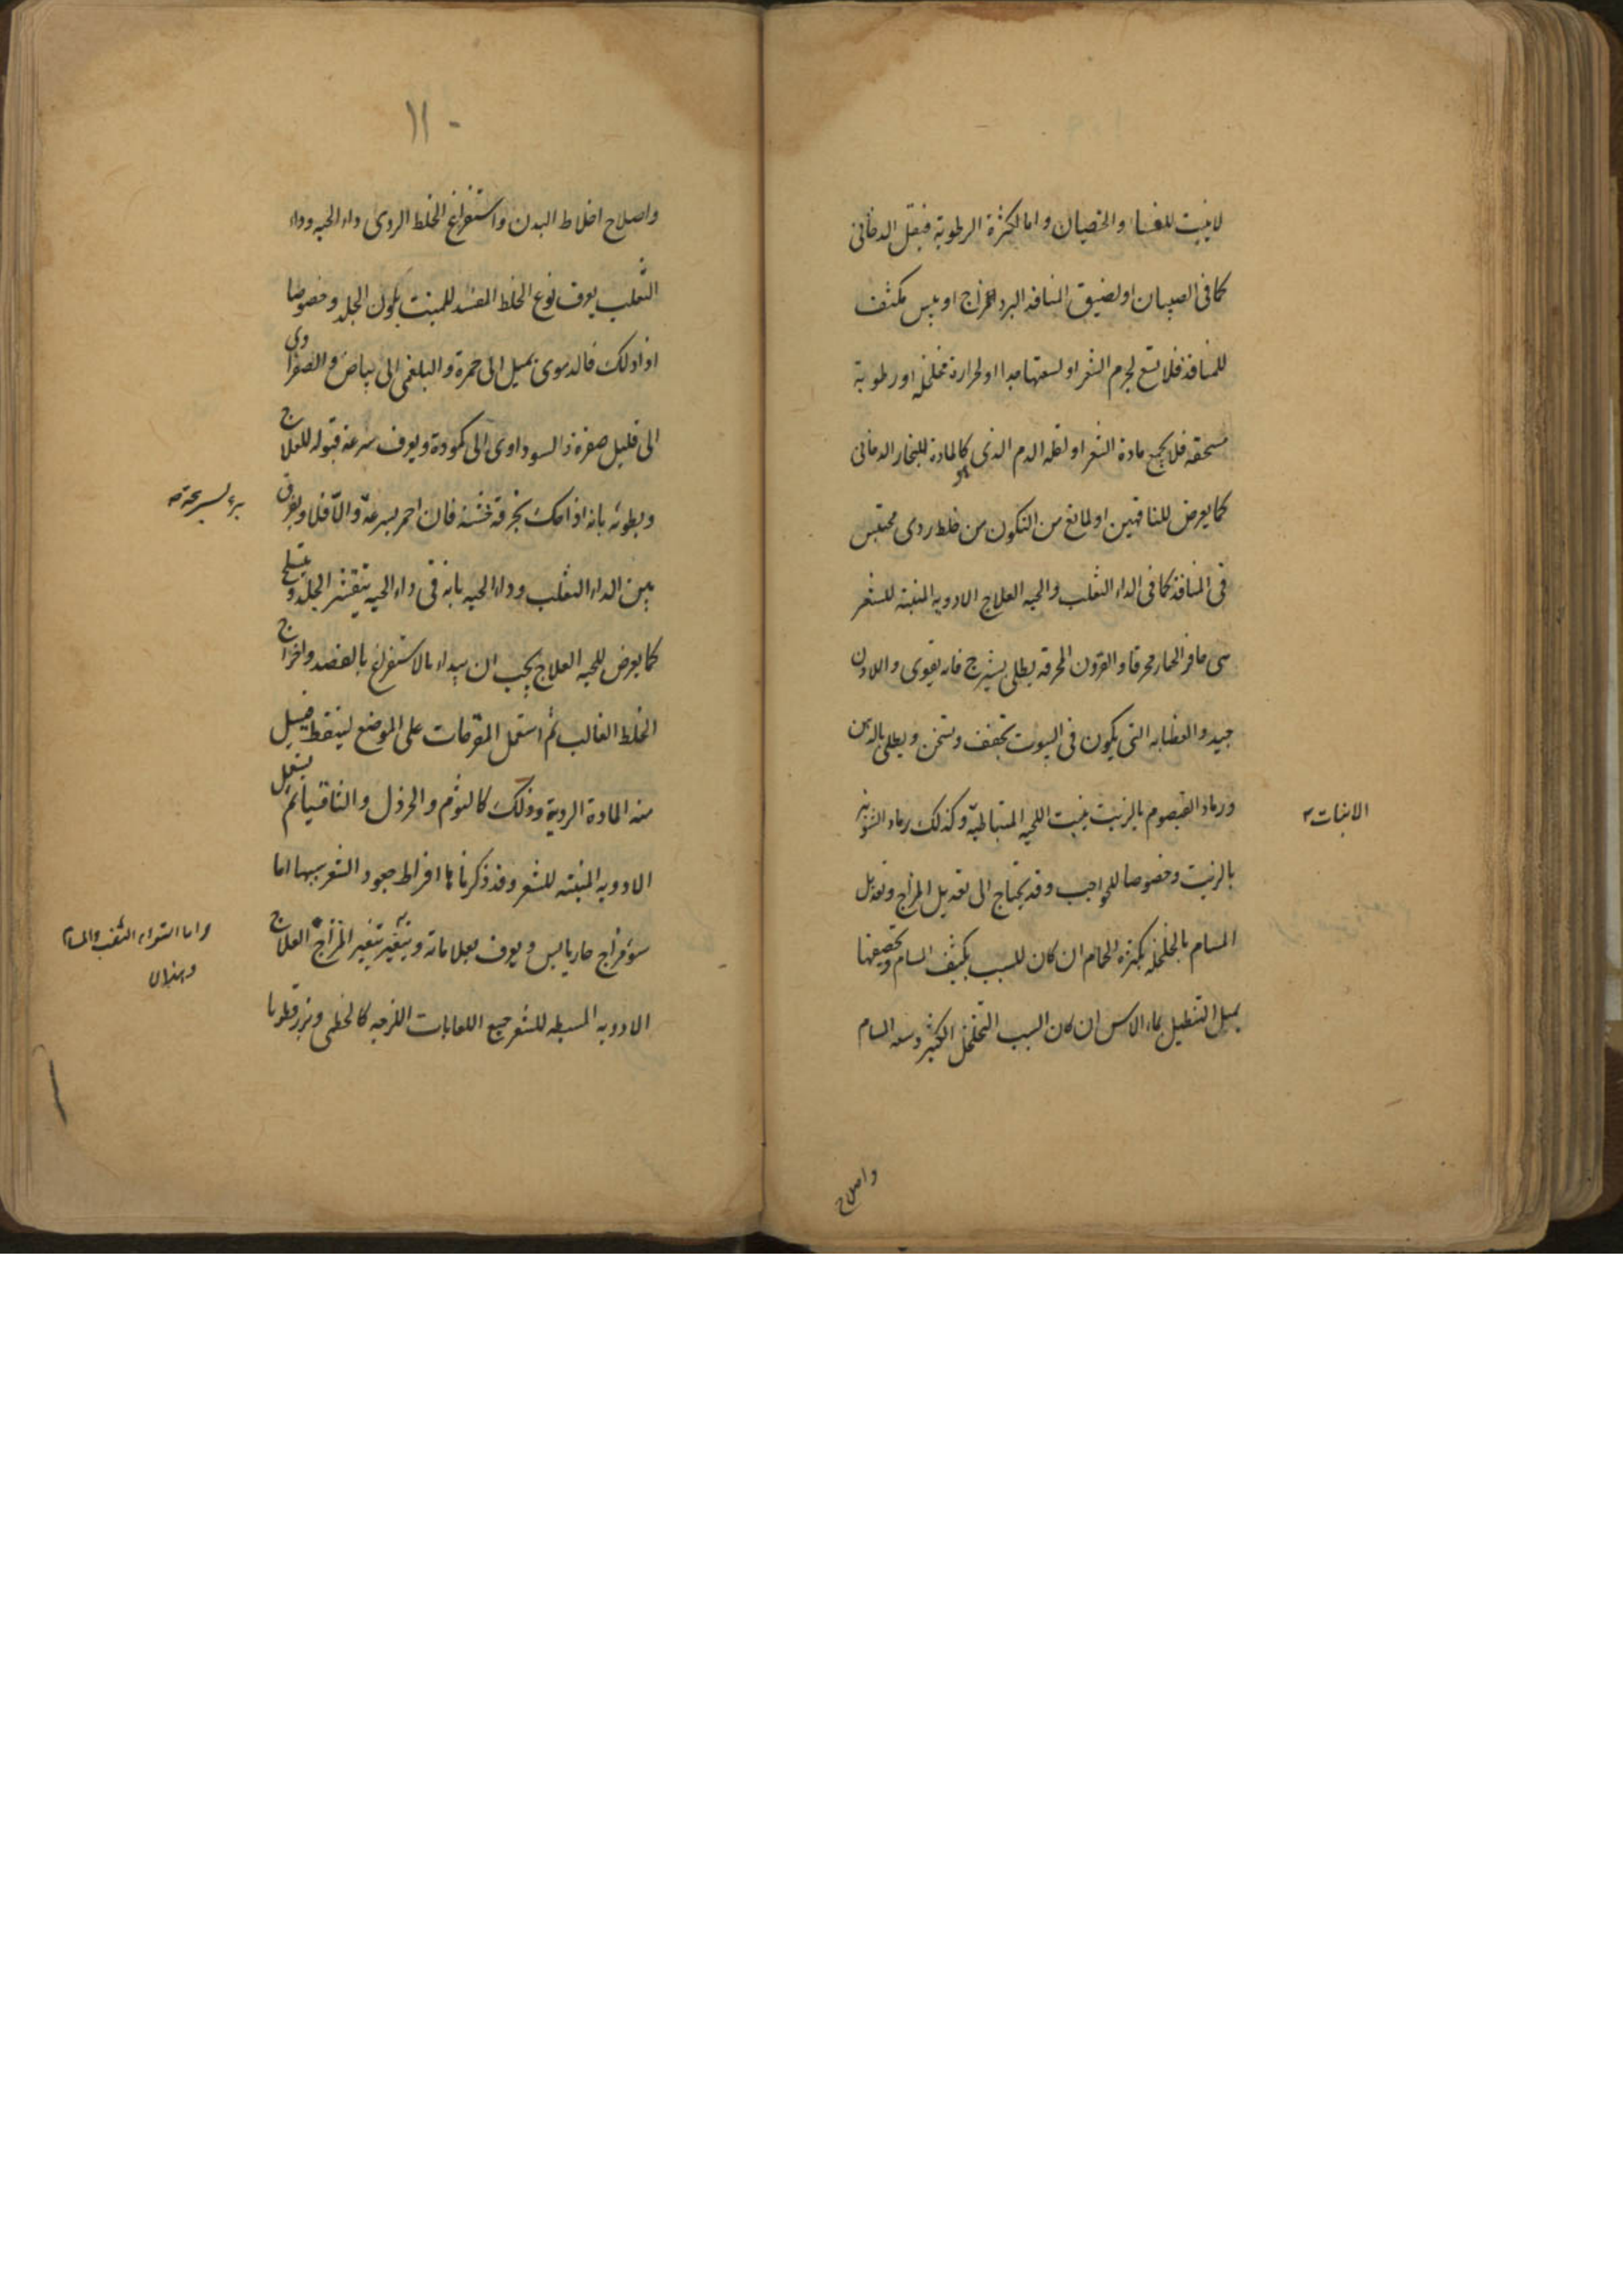 لاينبت للنساء والخصيان واما لكثرة الرطوبة فيقل الدخانى
كما فى الصبيان او لضيق المنافذ البرد المزاج او يبس مكثف
للمنافذ فلا تسع لجرم الشعر او لسعتها جدا او لحرارة مخلخلة او رطوبة
فلا يجمع مادة الشعر او لقلة الدم الذى هو كالمادة للبخار الدخانى
كما يعرض للناقهين او لمانع من التكون من خلط ردى محتبس
فى المنافذ كما فى الداء الثعلب والحيه العلاج الادويه المنبتة للشعر
حافر الحمار محرقا والقرون المحرقه يطلى بشيرج فانه يقوى واللادن
جيد والعظايه التى يكون فى البيوت تجفف وتسخن ويطلى بالدهن
ورماد القيصوم بالزيت ينبت اللحيه المتباطية وكذلك رماد الشونيز
الانبات
بالزيت وخصوصا للحواجب وقد يحتاج الى تعديل المزاج وتعديل
المسام بالخلخلة بكثرة الحمام ان كان السبب تكثيف المسام وتضيقها
بميل التنطيل بماء الاس ان كان السبب التخلخل الكثير وسعه المسام
واصلاح
١١٠
واصلاح اخلاط البدن واستفراغ الخلط الردى داء الحيه وداء
الثعلب يعرف نوع الخلط المفسد للمنبت بلون الجلد وخصوصا
اذا دلك فالدموى يميل الى حمرة والبلغمى الى بياض والصفراوى
الى قليل صفرة والسوداوى الى كمودة ويعرف سرعة قبوله للعلاج
وبطوئه بانه اذا حك بخرقة خشنة فان احمر بسرعة والا فلا ويفرق
بين الداء الثعلب وداء الحيه بانه فى داء الحيه يتقشر الجلد وينسلخ
كما يعرض للحيه العلاج يجب ان يبداء بالاستفراغ بالفصد واخراج
الخلط الغالب ثم استعمل المقرحات على الموضع لينقط فيسيل
منه المادة الردية وذلك كالثوم والخردل والثافسيا ثم يستعمل
الادويه المنبته للشعر وقد ذكرناها افراط جعود الشعر سببها اما
سوء مزاج حار يابس ويعرف بعلاماته ويتغير بتغير المزاج العلاج
واما التواء الثقب والمسام
الادويه المسبطه للشعر جميع اللعابات اللزجه كالخطمى وبزر قطونا